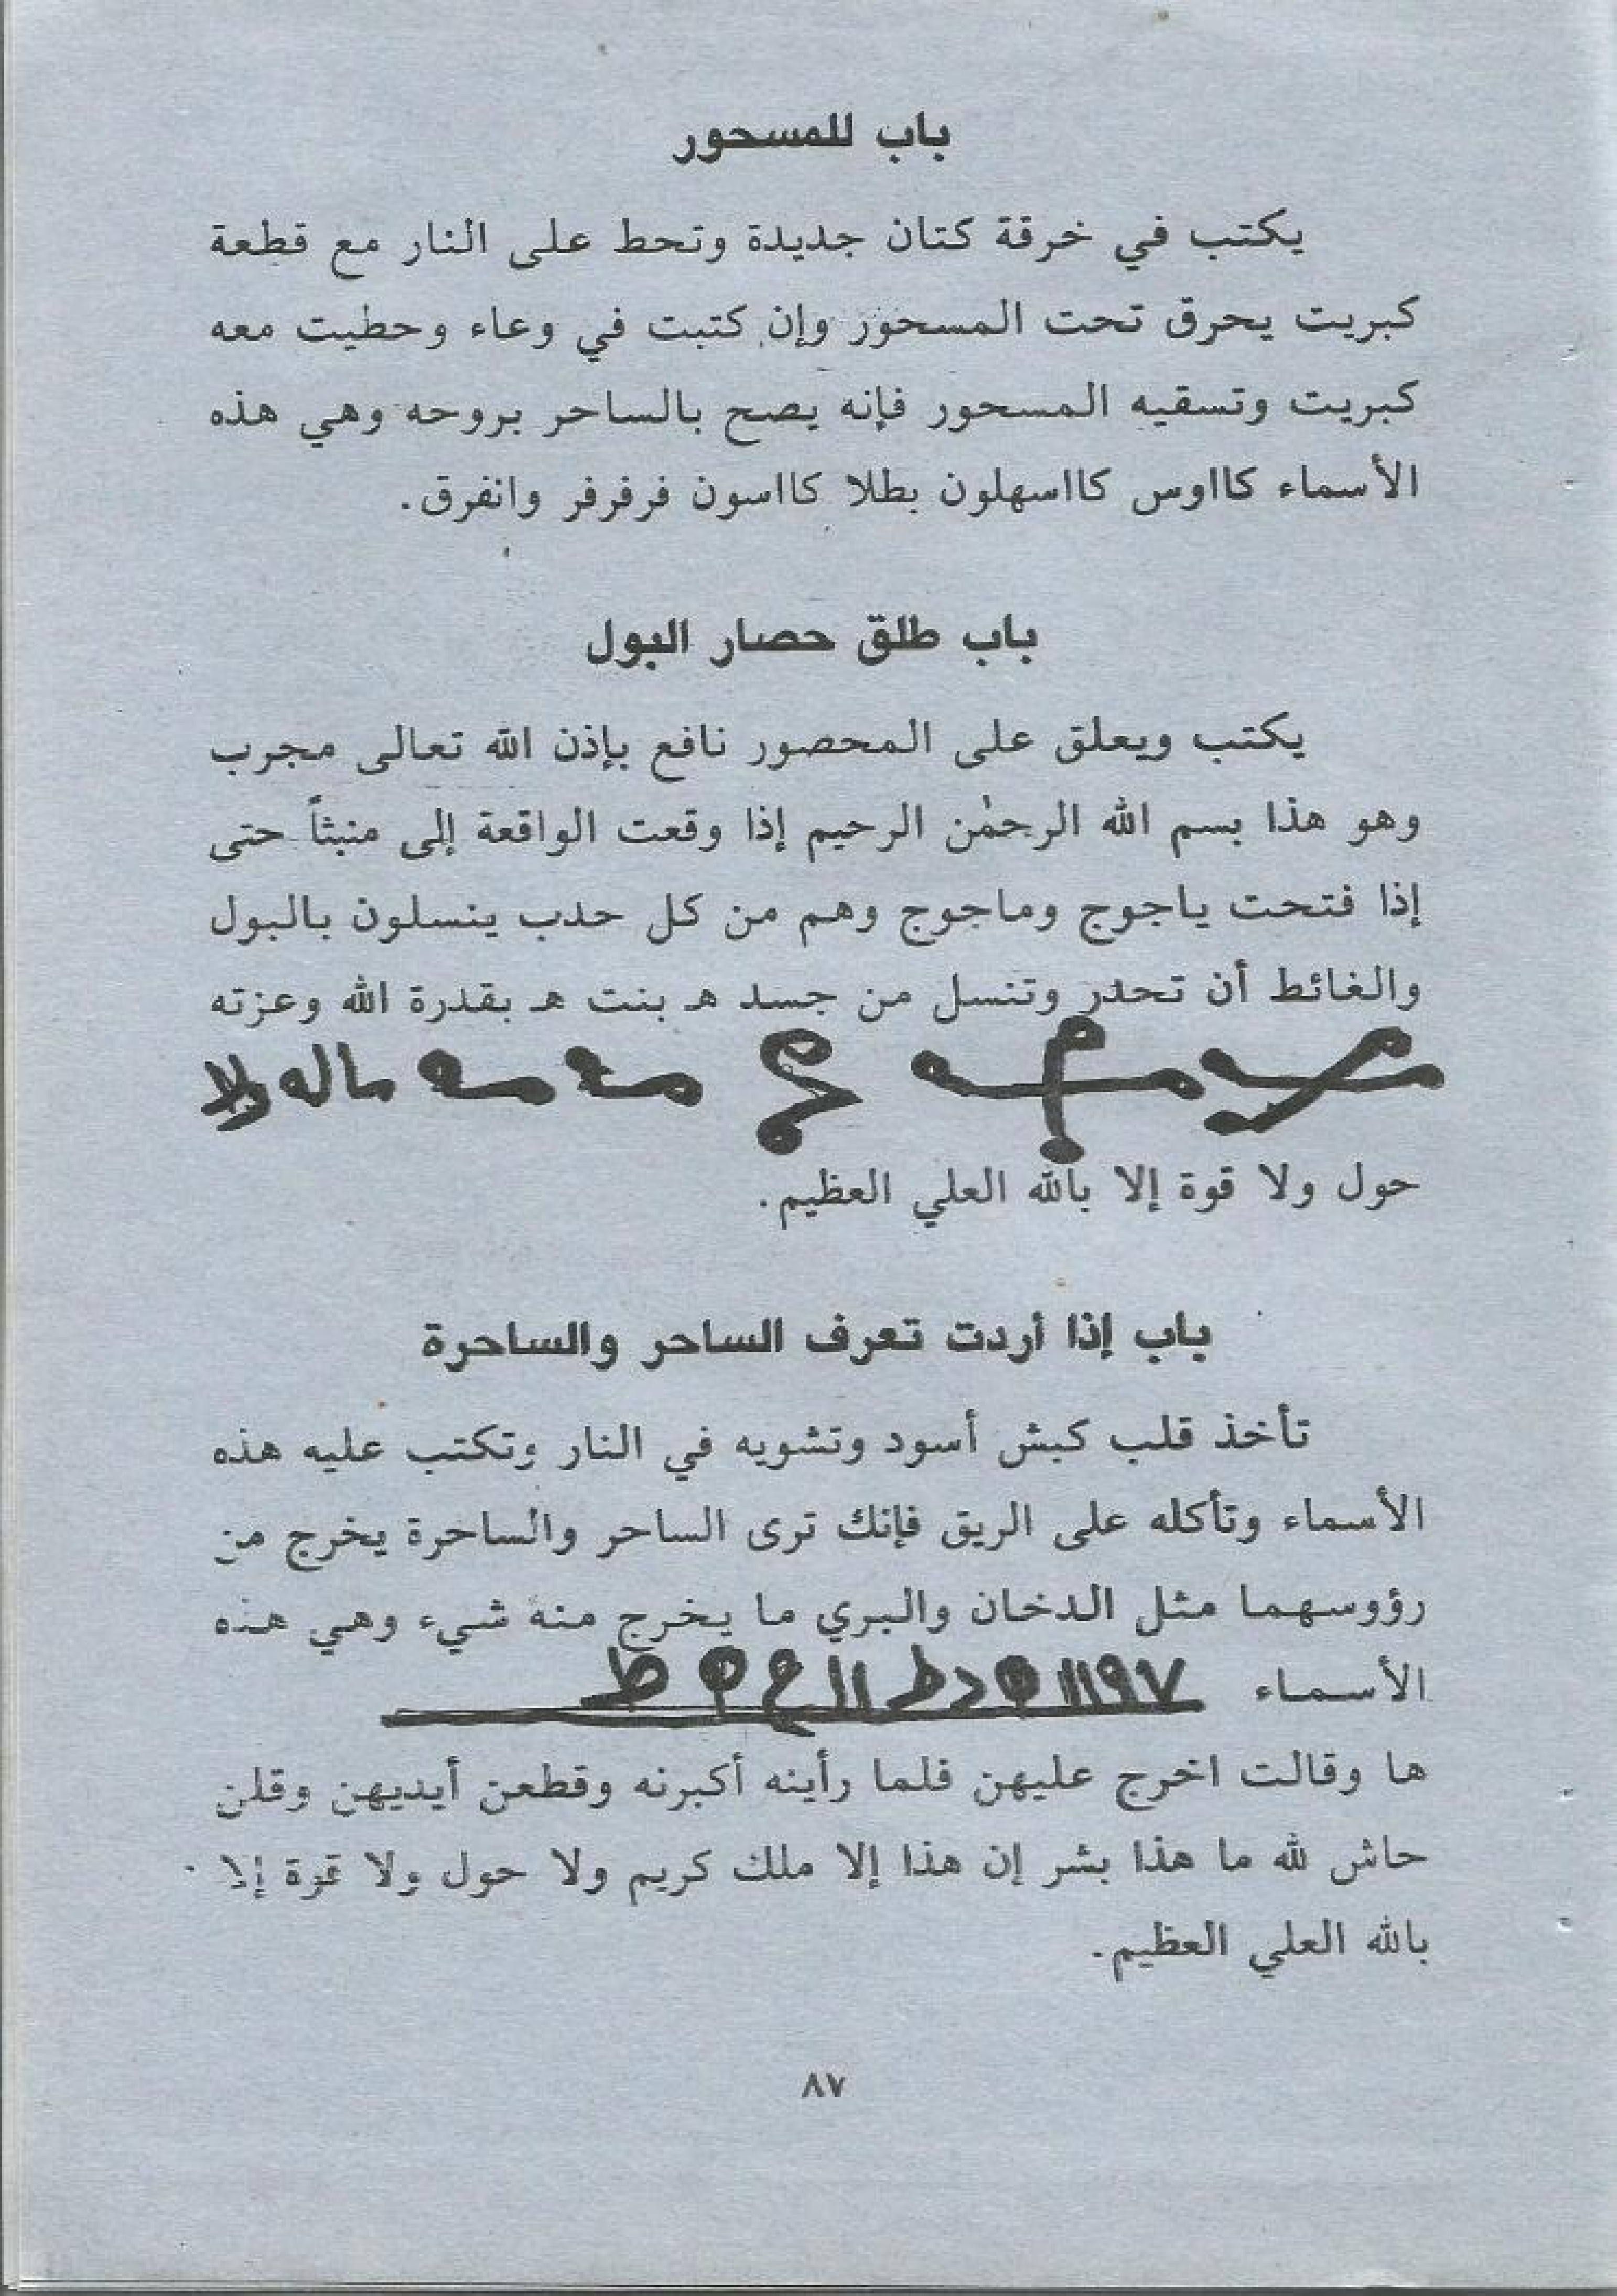 باب للمسحور
يكتب في خرقة كتان جديدة وتحط على النار مع قطعة
كبريت يحرق تحت المسحور وإن كتبت في وعاء وحطيت معه
كبريت وتسقيه المسحور فإنه يصح بالساحر بروحه وهي هذه
الأسماء كااوس كااسهلون بطلا كااسون فرفرفر وانفرق.
باب طلق حصار البول
يكتب ويعلق على المحصور نافع بإذن الله تعالى مجرب
وهو هذا بسم الله الرحمٰن الرحيم إذا وقعت الواقعة إلى منبثاً حتى
إذا فتحت ياجوج وماجوج وهم من كل حدب ينسلون بالبول
والغائط أن تحدر وتنسل من جسد هـ بنت هـ بقدرة الله وعزته
ولا
حول ولا قوة إلا بالله العلي العظيم.
باب إذا أردت تعرف الساحر والساحرة
تأخذ قلب كبش أسود وتشويه في النار وتكتب عليه هذه
الأسماء وتأكله على الريق فإنك ترى الساحر والساحرة يخرج من
رؤوسهما مثل الدخان والبري ما يخرج منه شيء وهي هذه
الأسماء
ها وقالت اخرج عليهن فلما رأينه أكبرنه وقطعن أيديهن وقلن
حاش لله ما هذا بشر إن هذا إلا ملك كريم ولا حول ولا قوة إلا
بالله العلي العظيم.
٨٧